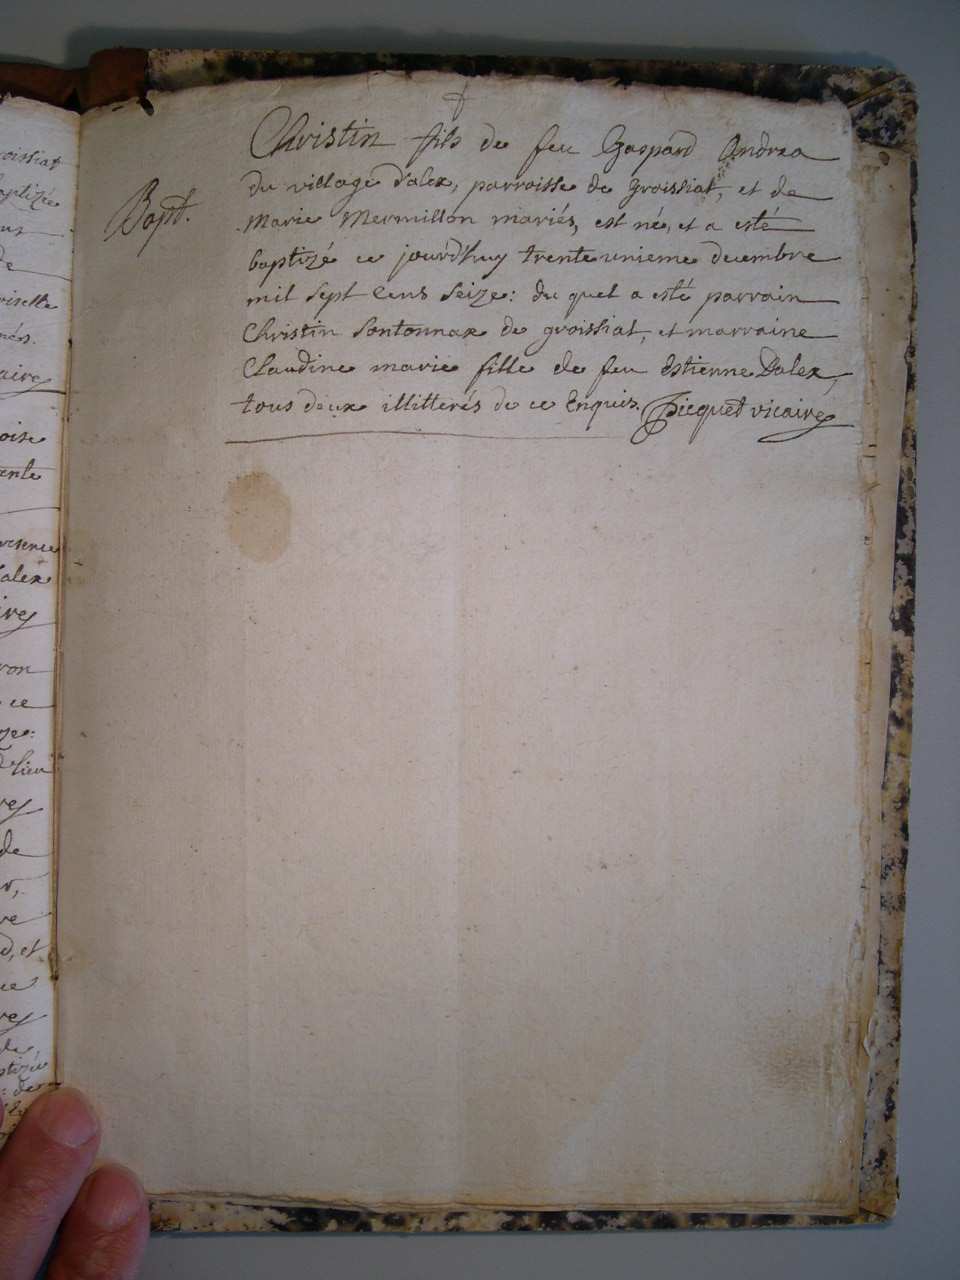 Christin fils de feu Gaspard Andrea
du village d'alex, parroisse de groissiat, et de
Bapt.
Marie Mermillon mariés, est né, et a esté
baptizé ce jourd'huy trente unieme decembre
mil sept cens seize: du quel a esté parrain
Christin Sontonnax de groissiat, et marraine
Claudine marie fille de feu Estienne Dalex,
tous deux illitterés de ce Enquis. Picquet vicaire
oissiat
baptizée
de
oiselle
nés.
aire
oise
ente
resence
alex
ron
ce
lieu
de
ve
d, et
de